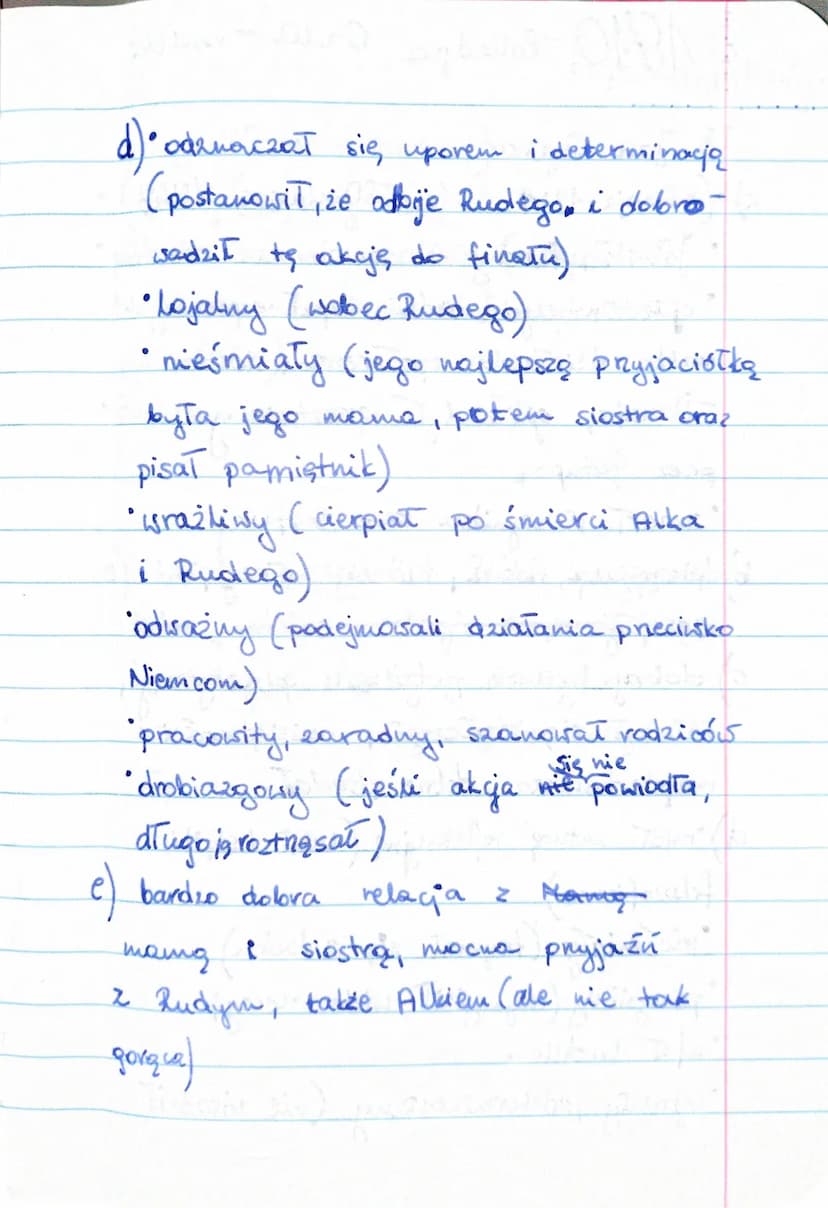 d) • odznaczał się uporem i determinacją
(postanowił, że odbije Rudego. i dobro-
wadził tę akcję do finału)
• Lojalny (wobec Rudego)
• nieśmiały (jego najlepszą przyjaciółką
była jego mama, potem siostra oraz
pisał pamiętnik)
• wrażliwy (cierpiał po śmierci Alka
i Rudego)
• odważny (podejmowali działania przeciwko
Niemcom)
• pracowity, zaradny, szanował rodziców
• drobiazgowy (jeśli akcja się nie powiodła,
długo ją roztrząsał)
e) bardzo dobra relacja z Mamą
mamą i siostrą, mocna przyjaźń
z Rudym, także Alkiem (ale nie tak
gorąca)